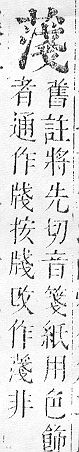 舊註將先切音箋紙用色飾
者通作牋按牋改作非